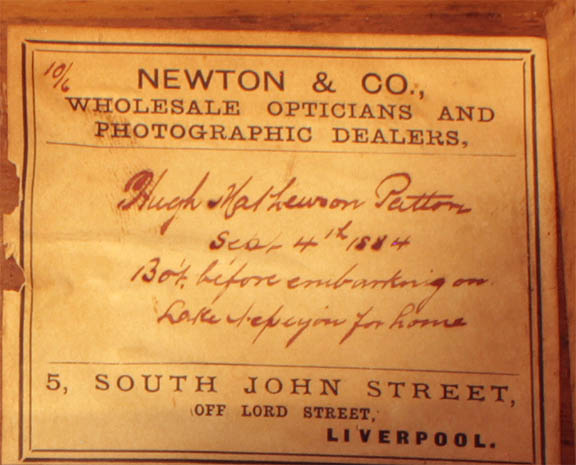 10/6
NEWTON & CO.,
WHOLESALE OPTICIANS AND
PHOTOGRAPHIC DEALERS,
Hugh Mathewson Patton
Sep. 4th 1884
Bot. before embarking on
Lake Nepigon for home
5, SOUTH JOHN STREET,
(OFF LORD STREET,
LIVERPOOL.